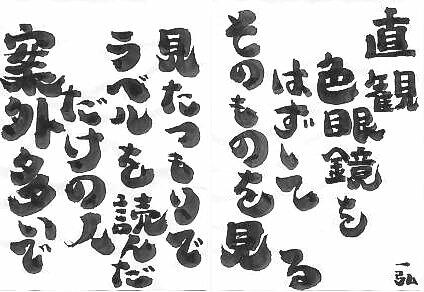 直観
色眼鏡を
はずして
そのものを見る
一弘
見たつもりで
ラベルを読んだ
だけの人
案外多いで